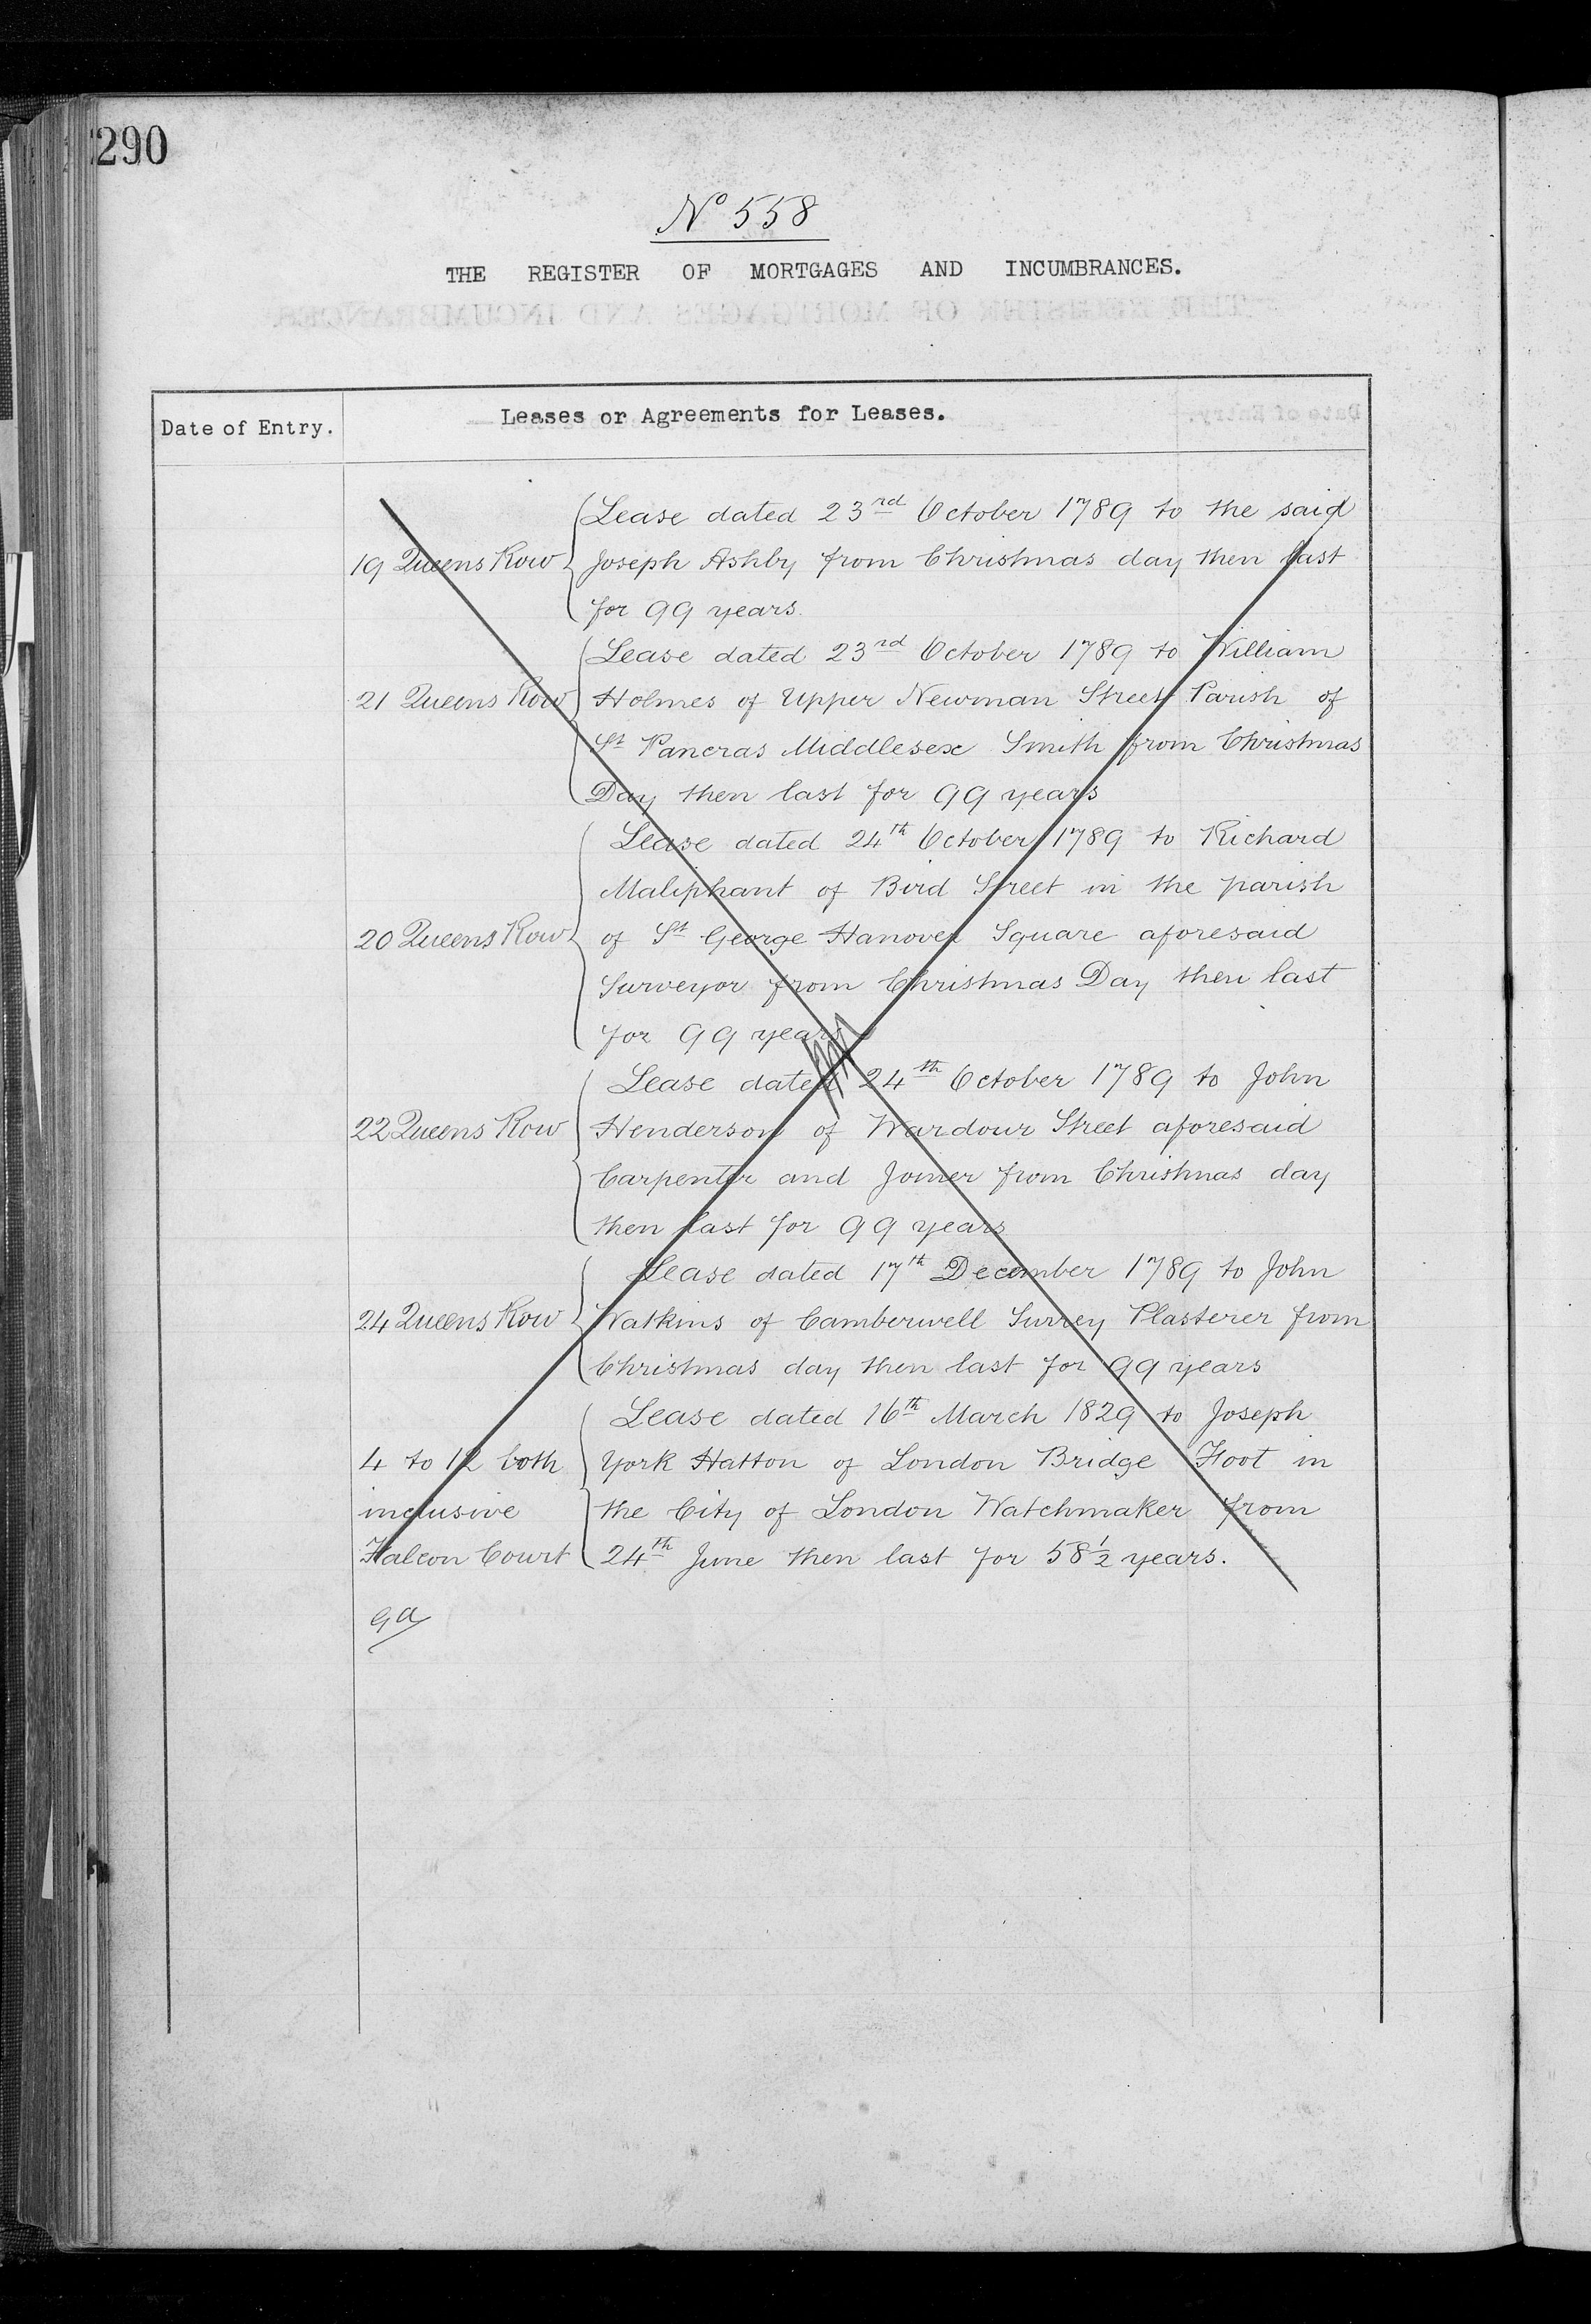 290
No 558
THE REGISTER OF MORTGAGES AND INCUMBRANCES.
Date of Entry.
Leases or Agreements for Leases.
Lease dated 23rd October 1789 to the said
19 Queens Row Joseph Ashby from Christmas day then last
for 99 years.
Lease dated 23rd October 1789 to William
21 Queens Row Holmes of Upper Newman Street Parish of
St Pancras Middlesex Smith from Christmas
Day then last for 99 years
Lease dated 24th October 1789 to Richard
Maliphant of Bird Street in the parish
20 Queens Row of St George Hanover Square aforesaid
Surveyor from Christmas Day then last
for 99 years
Lease dated 24th October 1789 to John
22 Queens Row Henderson of Wardour Street aforesaid
Carpenter and Joiner from Christmas day
then last for 99 years
Lease dated 17th December 1789 to John
24 Queens Row Watkins of Camberwell Surrey Plasterer from
Christmas day then last for 99 years
Lease dated 16th March 1829 to Joseph
4 to 12 both York Hatton of London Bridge Foot in
inclusive the City of London Watchmaker from
Falcon Court 24th June then last for 58 1/2 years.